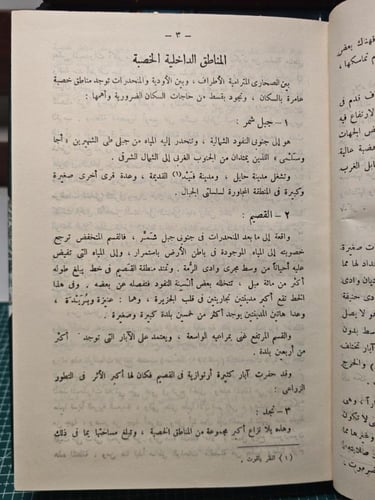 — ٣ —
المناطق الداخلية الخصبة
بين الصحارى المترامية الأطراف ، وبين الأودية والمنحدرات توجد مناطق خصبة
عامرة بالسكان ، وتجود بقسط من حاجات السكان الضرورية وأهمها :
١ – جبل شمر :
هو إلى جنوبى النفود الشمالية ، وتنحدر إليه المياه من جبلى طى الشهيرين "أجا
وسلمى" اللذين يمتدان من الجنوب الغرب إلى الشمال الشرق .
وتشغل مدينة حايل ، ومدينة فيد (١) القديمة ، وعدة قرى أخرى صغيرة
وكبيرة فى المنطقة المجاورة لسلسلتى الجبال .
٢ – القصيم :
واقعة إلى ما بعد المنحدرات فى جنوبى جبل شمر ، فالقسم المنخفض ترجع
خصوبته إلى المياه الموجودة فى باطن الأرض باستمرار ، وإلى المياه التى تفيض
عليه أحيانا من وسط مجرى وادى الرمة . وتمتد منطقة القصيم فى خط يبلغ طوله
أكثر من مائة ميل ، تتخلله بعض ألسنة النفود فتفصله عن بعضه . وفى هذا
الخط تقع أكبر مدينتين تجاريتين فى قلب الجزيرة ، وهما : عنيزة وبريدة ،
وعدا هاتين المدينتين يوجد أكثر من خمسين بلدة كبيرة وصغيرة .
والقسم المرتفع غنى بمراعيه الواسعة ، ويعتمد على الآبار التى توجد أكثر
من أربعين بلدة .
وقد حفرت آبار كثيرة أرتوازية فى القصيم فكان لها أكبر الأثر فى التطور
الزراعى :
٣ – نجد :
وهذه بلا نزاع أكبر مجموعة من المناطق الخصبة ، وتبلغ مساحتها بما فى ذلك
(١) انظر ياقوت .